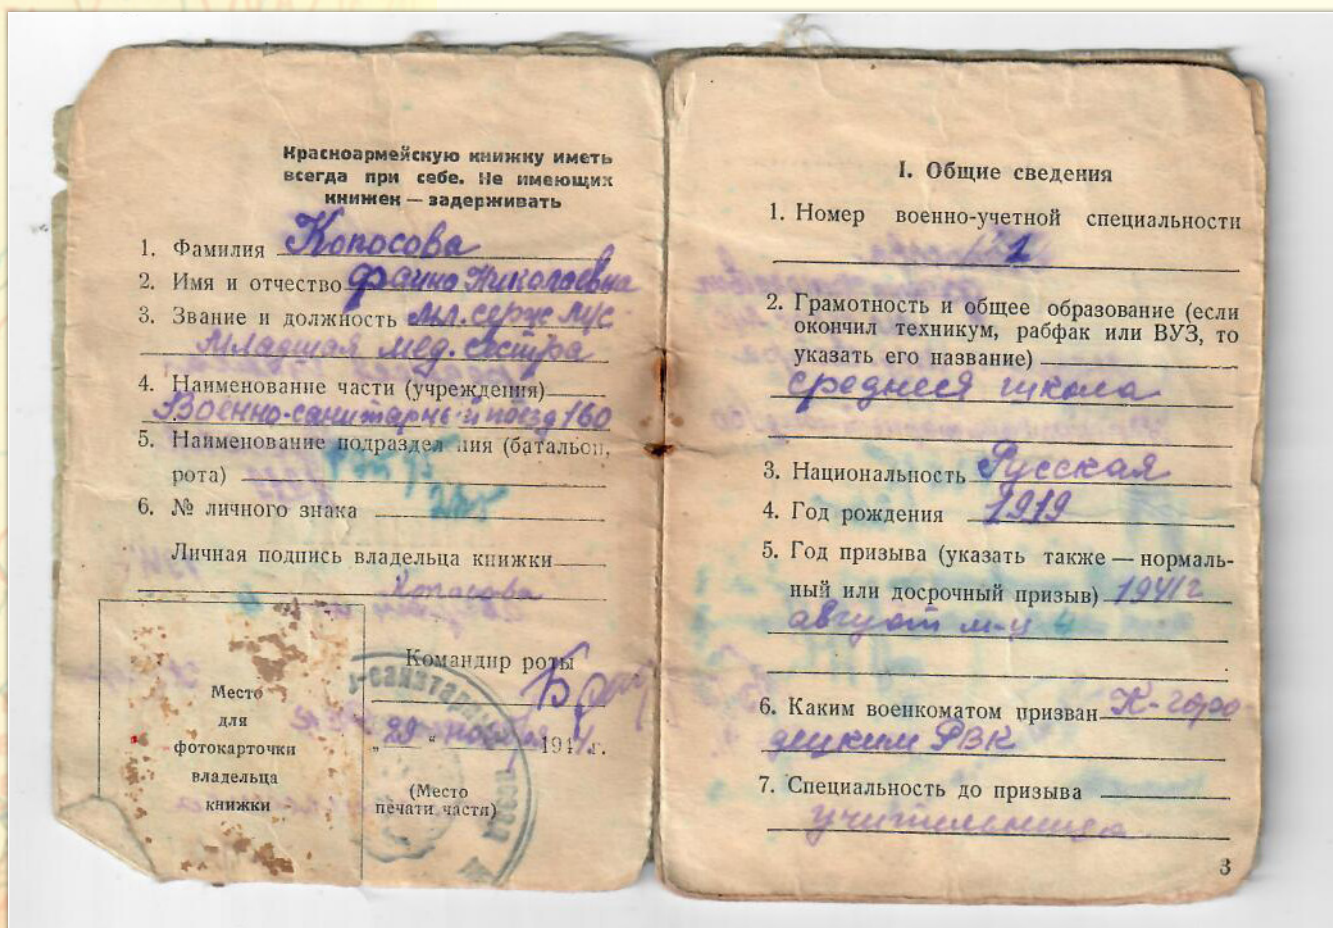 Красноармейскую книжку иметь
всегда при себе. Не имеющих
книжек — задерживать
1. Фамилия Копосова
2. Имя и отчество Фаина Николаевна
3. Звание и должность мл. серж м/с
Младшая мед. сестра
4. Наименование части (учреждения)
Военно-санитарный поезд 160
5. Наименование подразделения (батальон,
рота)
6. № личного знака
Личная подпись владельца книжки
Копосова
Место
для
фотокарточки
владельца
книжки
Командир роты
„29“ 194 г.
(Место
печати части)
I. Общие сведения
1. Номер военно-учетной специальности
1
2. Грамотность и общее образование (если
окончил техникум, рабфак или ВУЗ, то
указать его название)
средняя школа
3. Национальность Русская
4. Год рождения 1919
5. Год призыва (указать также — нормаль-
ный или досрочный призыв) 1941 г
август м-ц
6. Каким военкоматом призван К-горо
децким РВК
7. Специальность до призыва
учительница
3